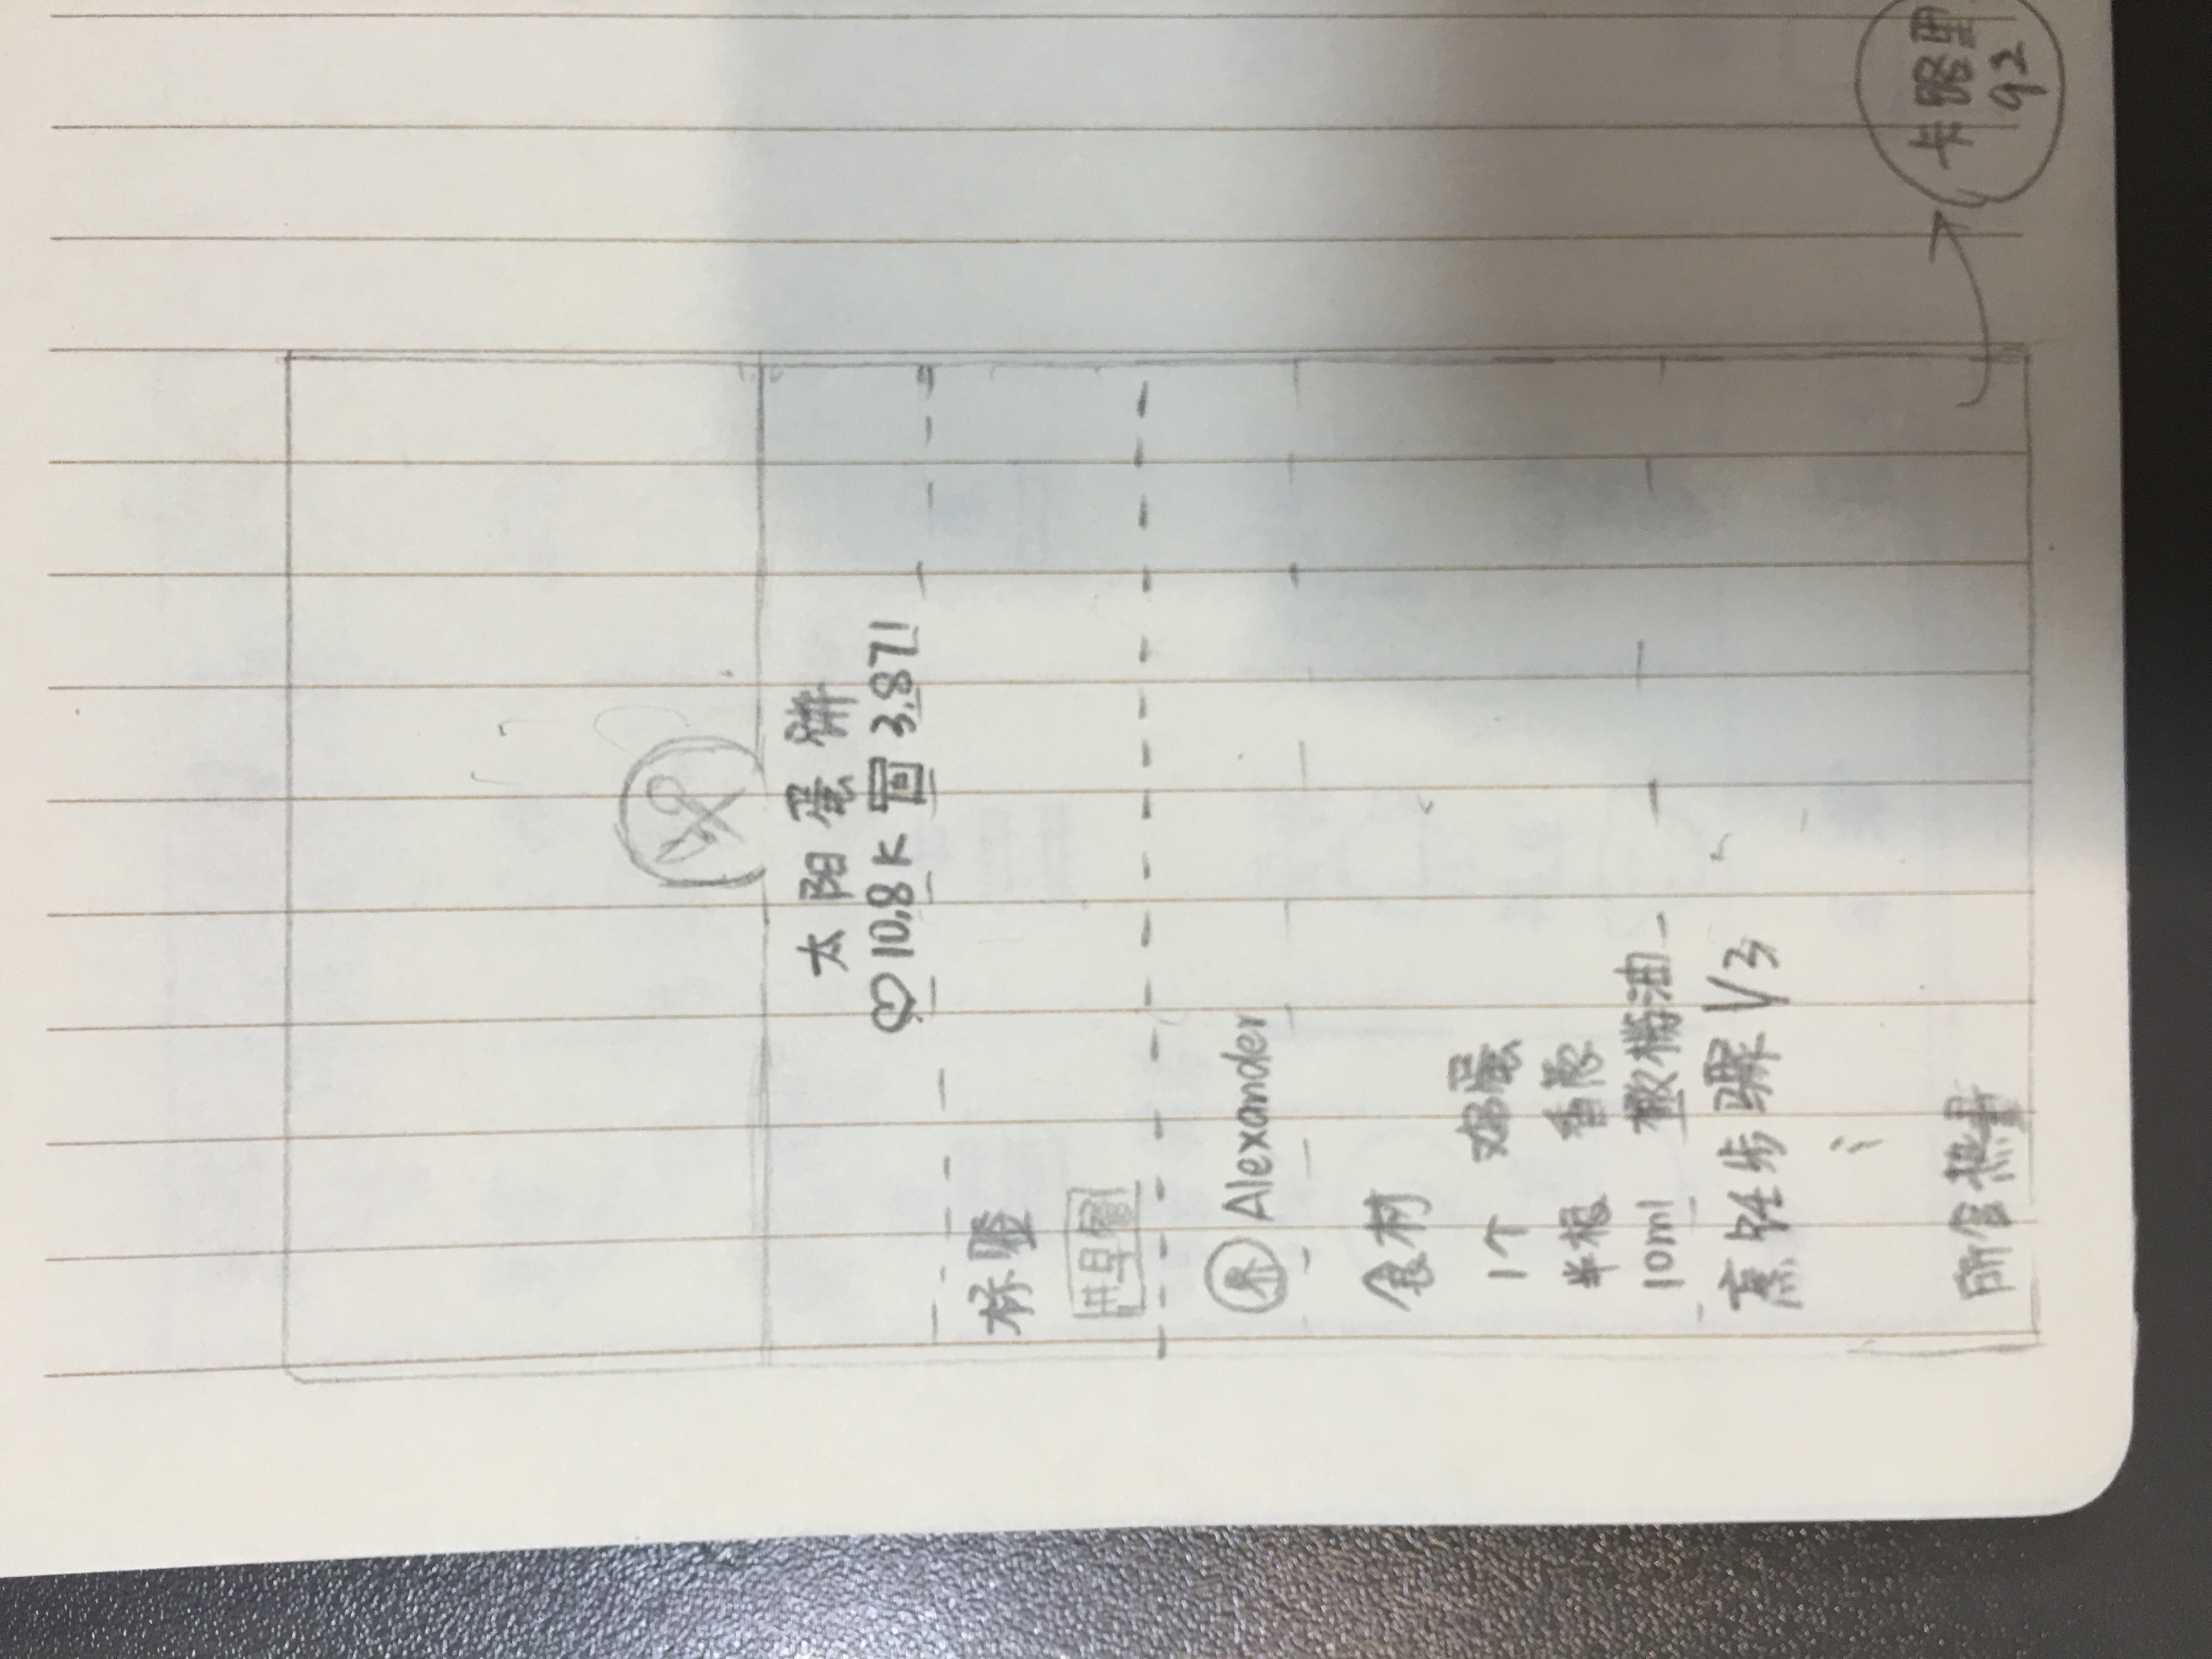 太阳蛋饼
10.8K 3.871
标签
#早餐
Alexander
食材
1个 鸡蛋
半根 香葱
10ml 橄榄油
烹饪步骤 1/3
所含热量
卡路里
92